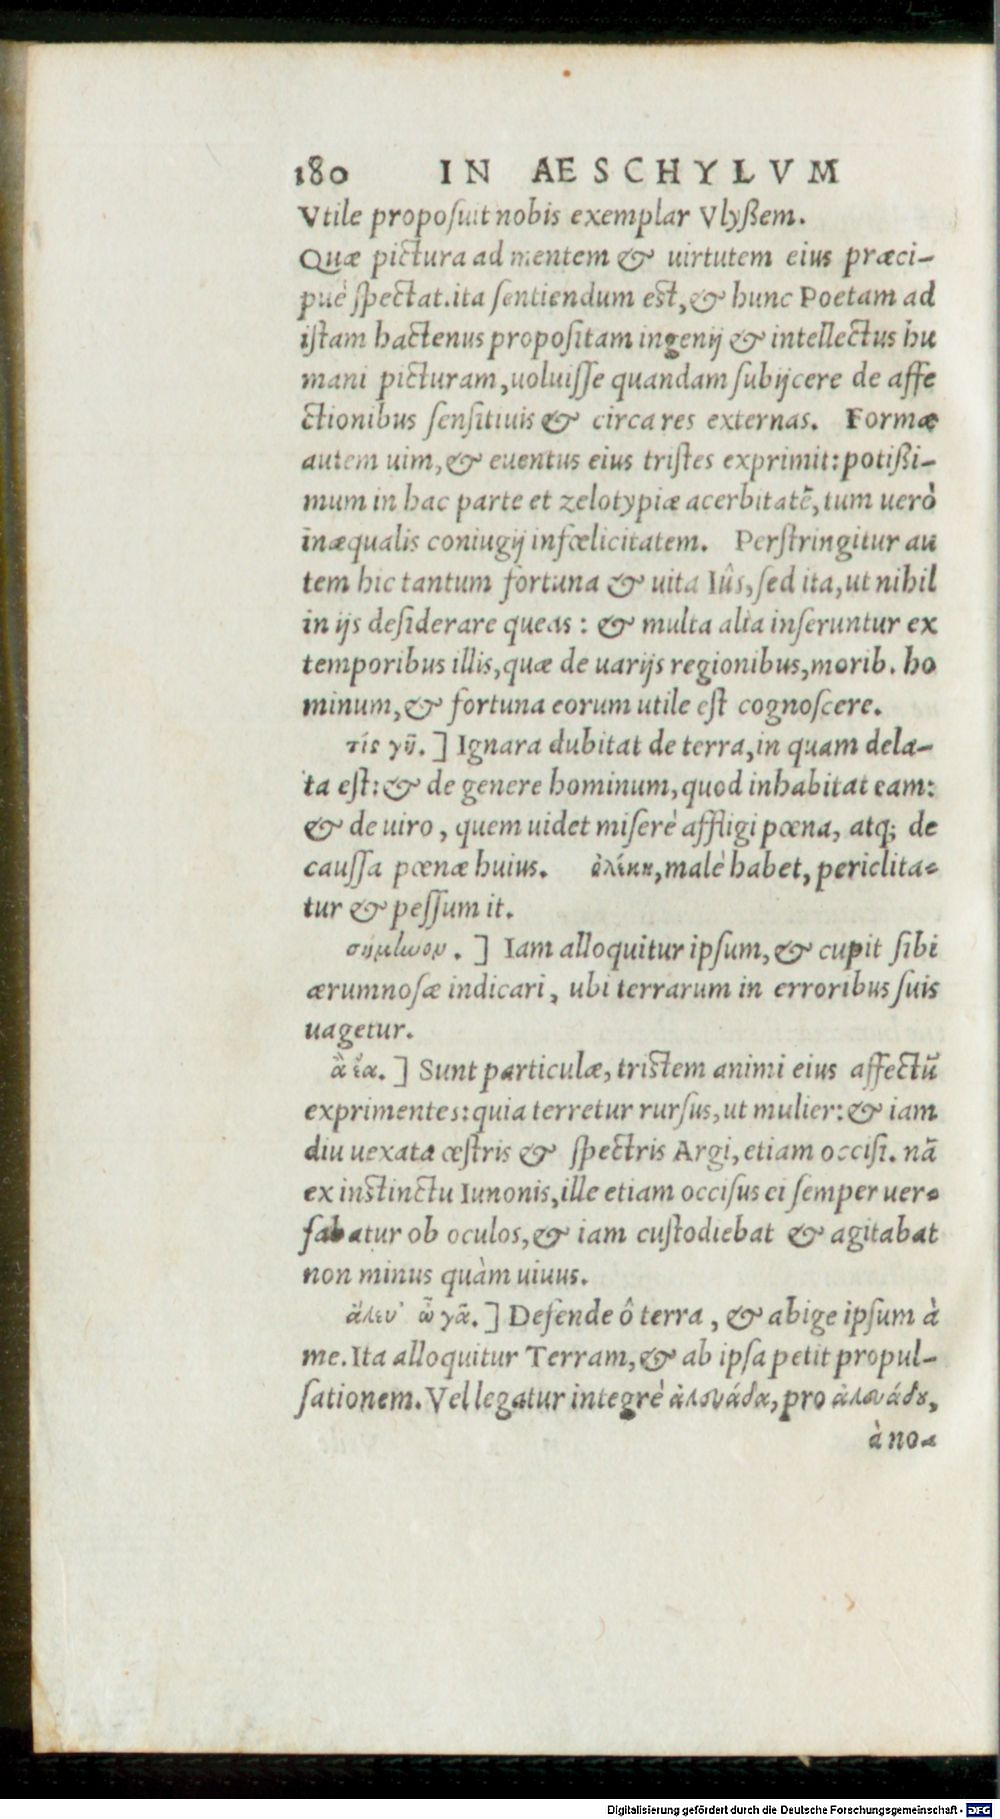 180 IN AESCHYLVM
Vtile proposuit nobis exemplar Vlyßem.
Quæ pictura ad mentem & uirtutem eius præci-
puè spectat. ita sentiendum est, & hunc Poetam ad
istam hactenus propositam ingenij & intellectus hu
mani picturam, uoluisse quandam subijcere de affe
ctionibus sensitiuis & circa res externas. Formæ
autem uim, & euentus eius tristes exprimit: potißi-
mum in hac parte et zelotypiæ acerbitatẽ, tum uerò
inæqualis coniugij infœlicitatem. Perstringitur au
tem hic tantum fortuna & uita Iûs, sed ita, ut nihil
in ijs desiderare queas: & multa alia inseruntur ex
temporibus illis, quæ de uarijs regionibus, morib. ho
minum, & fortuna eorum utile est cognoscere.
τίς γῆ.] Ignara dubitat de terra, in quam dela-
ta est: & de genere hominum, quod inhabitat eam:
& de uiro, quem uidet miserè affligi pœna, atq; de
caussa pœnæ huius. ὀλέκῃ, malè habet, periclita-
tur & pessum it.
σήμηνον.] Iam alloquitur ipsum, & cupit sibi
ærumnosæ indicari, ubi terrarum in erroribus suis
uagetur.
ἆ ἔα.] Sunt particulæ, tristem animi eius affectũ
exprimentes: quia terretur rursus, ut mulier: & iam
diu uexata œstris & spectris Argi, etiam occisi. nã
ex instinctu Iunonis, ille etiam occisus ei semper uer-
sabatur ob oculos, & iam custodiebat & agitabat
non minus quàm uiuus.
ἄλευ' ὦ γᾶ.] Defende ô terra, & abige ipsum à
me. Ita alloquitur Terram, & ab ipsa petit propul-
sationem. Vel legatur integrè ἀλευάδα, pro ἀλευάδου,
à no-
Digitalisierung gefördert durch die Deutsche Forschungsgemeinschaft - DFG